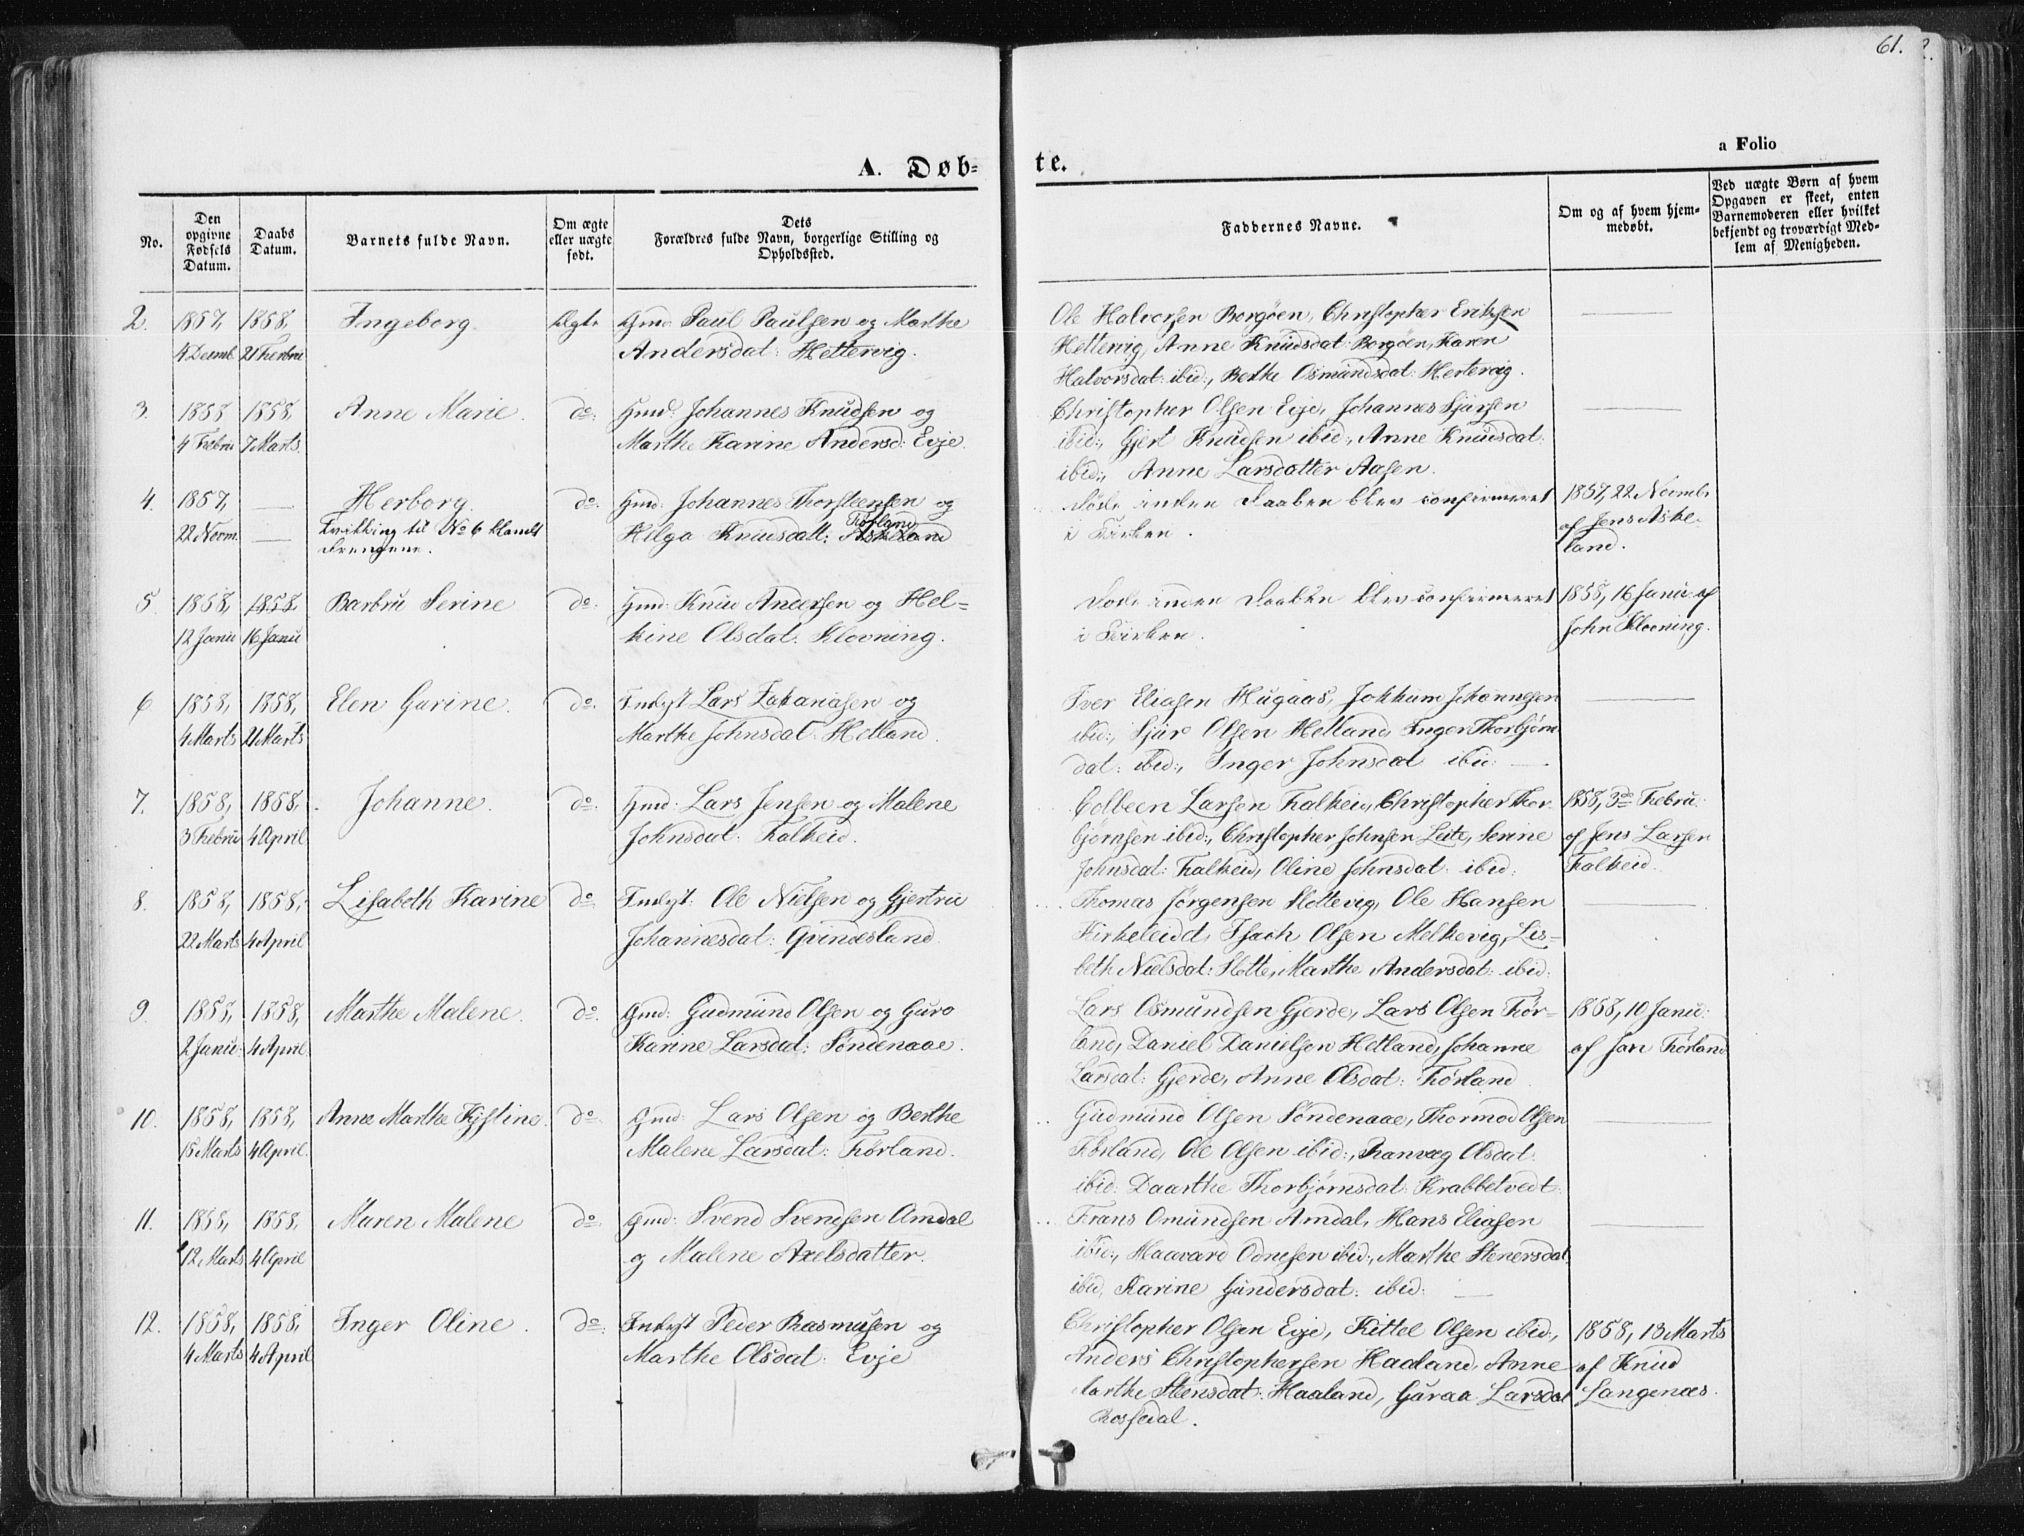 61.
a Folio
A. Døb-
te.
No.
Den opgivne Fødsels Datum.
Daabs Datum.
Barnets fulde Navn.
Om ægte eller uægte født.
Dets Forældres fulde Navn, borgerlige Stilling og Opholdssted.
Faddernes Navne.
Om og af hvem hjem-
medøbt.
Ved uægte Børn af hvem
Opgaven er skeet, enten
Barnemoderen eller hvilket
bekjendt og troværdigt Med-
lem af Menigheden.
2. 1857, 1858, Ingeborg. Ægte Gmd. Paul Paulsen og Marthe
4 Decemb. 21 Februr Andersdat: Hettervig.
Ole Halvorsen Borgøen, Christopher Eriksen
Hettervig, Anne Knudsdat: Borgøen, Karen
Halvorsdat: ibid:, Berthe Osmundsdat: Hertervig.
3. 1858 1858, Anne Marie. do: Gmd: Johannes Knudsen og
4 Febru 7 Marts. Marthe Karine Andersd: Evje.
Christopher Olsen Evje, Johannes Sjursen
ibid:, Gjert Knudsen ibid:, Anne Knudsdat:
ibid:, Anne Larsdatter Aasen.
4. 1857, Herborg. do: Gmd: Johannes Thorsteensen og
22 Novm. Tvilling til No 6 blandt
Drengene.
Førland
Helga Knudsdatt: Askeland
Døde inden Daaben blev confirmeret
i Kirken.
1857, 22 Novmb.
af Jens Aske-
land.
5. 1858, 1858, Barbru Serine do: Gmd: Knud Andersen og Hel-
12 Janu 16 Janu kine Olsdat: Klovning.
Døde inden Daaben blev confirmeret
i Kirken.
1858, 16 Janu: af
John Klovning.
6. 1858, 1858, Elen Gurine. do: Indst Lars Zakariasen og
4 Marts 21 Marts Marthe Johnsdat: Hetland.
Iver Eliasen Hugaas, Jokkum Johannesen
ibid:, Sjur Olsen Hetland, Inger Thorbjørns
dat: ibid:, Inger Johnsdat ibid:
7. 1858, 1858, Johanne. do: Gmd: Lars Jensen og Malene
3 Febru 4 April Johnsdat: Falkeid.
Colbeen Larsen Falkeid, Christopher Thor-
bjørnsen ibid:, Christopher Johnsen Leite, Serine
Johnsdat: Falkeid, Oline Johnsdat: ibid:
1858, 3de Febru:
af Jens Larsen
Falkeid.
8. 1858, 1858, Lisabeth Karine do: Indst: Ole Nielsen og Gjertru
22 Marts 4 April Johannesdat: Grindesland.
Thomas Jørgensen Slottevig, Ole Hansen
Kirkeleidt, Isach Olsen Melkevig, Lis-
beth Nielsdat: Slotte, Marthe Andersdat: ibid:
9. 1858, 1858, Marthe Malene. do: Gmd: Gudmund Olsen og Guro
2 Janu: 4 April. Karine Larsdat: Søndenaae.
Lars Osmundsen Gjerde, Lars Olsen Før-
land, Daniel Danielsen Hetland, Johanne
Larsdat: Gjerde, Anne Olsdat: Førland.
1858, 10 Janu:
af Jan Førland
10. 1858, 1858, Anne Marthe Kistine. do: Gmd: Lars Olsen og Berthe
15 Marts 4 April. Malene Larsdat: Førland.
Gudmund Olsen Søndenaae, Thormod Olsen
Førland, Ole Olsen ibid:, Ranvæg Olsdat:
ibid: Daarthe Thorbjørnsdat: Krabbetvedt.
11. 1858, 1858, Maren Malene do: Gmd: Svend Svendsen Amdal
12 Marts 4 April og Malene Axelsdatter.
Frans Omundsen Amdal, Hans Eliasen
ibid:, Haavard Odnesen ibid:, Marthe Stenersdat.
ibid, Karine Gundersdat: ibid:
12. 1858, 1858, Inger Oline. do: Indst Peder Rasmusen og
4 Marts 4 April Marthe Olsdat: Evje
Christopher Olsen Evje, Kittel Olsen ibid:,
Anders Christophersen Haaland, Anne
Marthe Steensdat: Haaland, Guraa Larsdat
Rossedal.
1858, 13 Marts
af Knud
Langenæs.